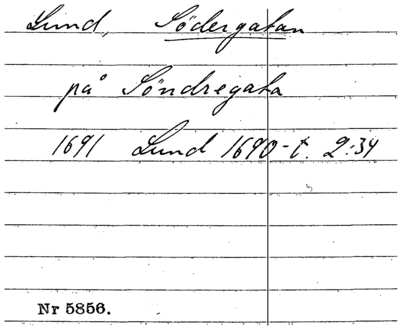 Lund, Södergatan
på Söndregata
1691 Lund 1690-t. 2:34
Nr 5856.